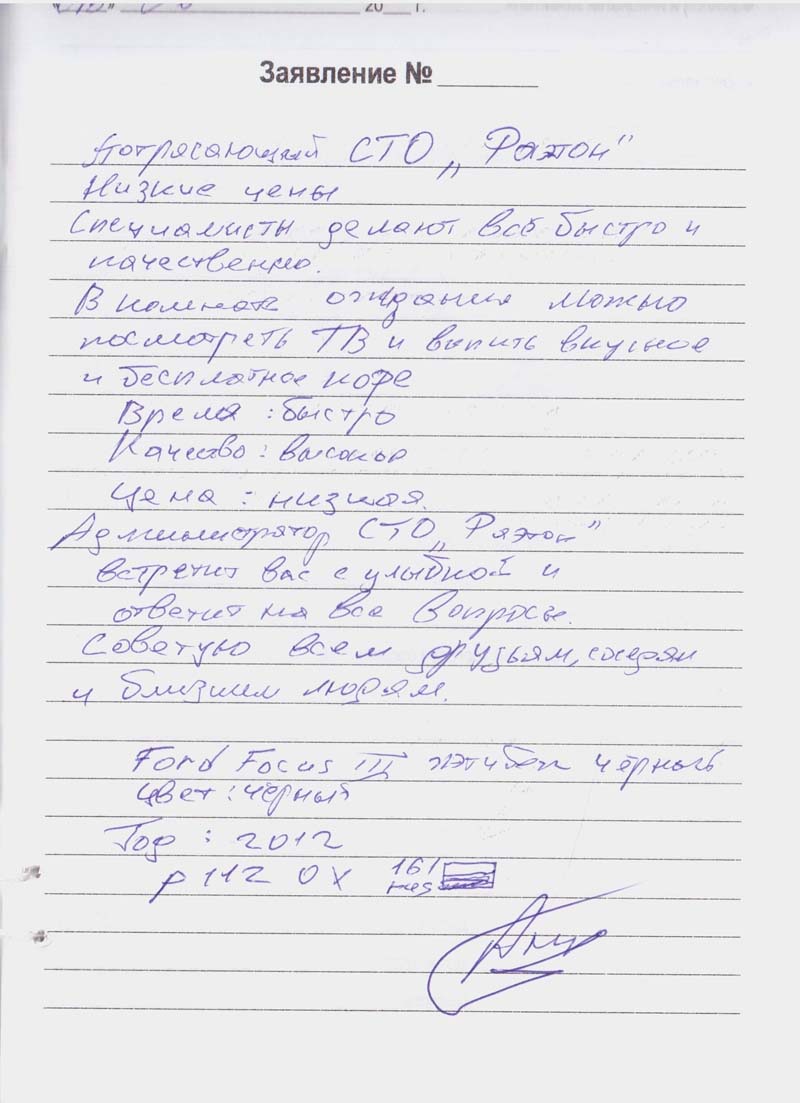 20 г.
Заявление №
Потрясающий СТО „Рэтон"
Низкие цены
Специалисты делают всё быстро и
качественно.
В комнате ожидания можно
посмотреть ТВ и выпить вкусное
и бесплатное кофе
Время : быстро
Качество : высокое
Цена : низкая.
Администратор СТО „Рэтон"
встретит вас с улыбкой и
ответит на все вопросы.
Советую всем друзьям, соседям
и близким людям.
Ford Focus III хэтчбек чёрный
Цвет : чёрный
Год : 2012
р 112 ОХ 161
rus